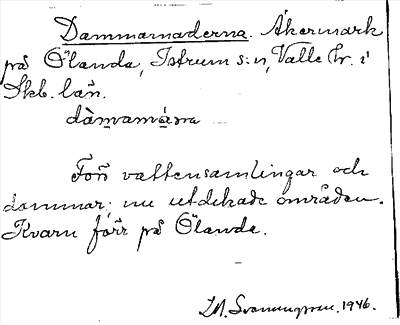 Dammamaderna. Åkermark
på Ölanda, Istrum s:n, Valle hr. i
Skb. län.
dàmamána
Förr vattensamlingar och
dammar; nu utdikade områden.
Kvarn förr på Ölanda.
1946.